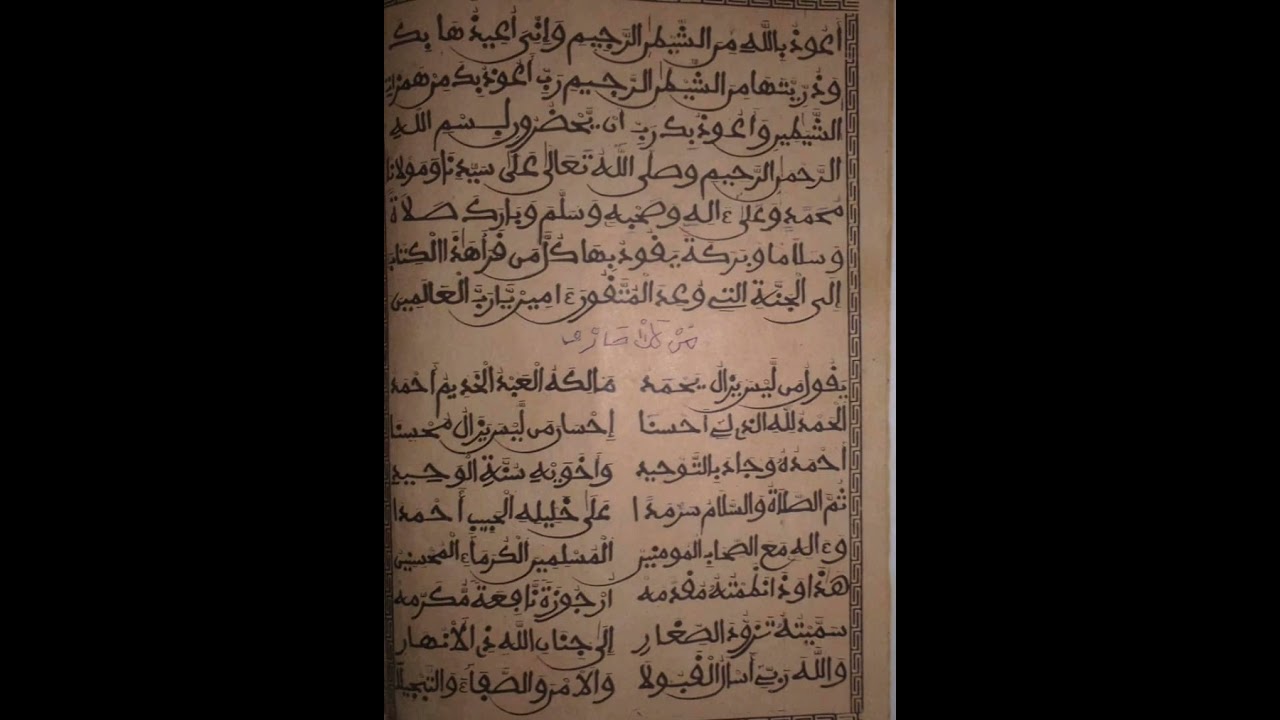 أعوذ بالله من الشيطن الرجيم وإني أعيذها بك
وذريتها من الشيطن الرجيم رب أعوذ بك من همزات
الشيطين وأعوذ بك رب أن يحضرون بسم الله
الرحمن الرحيم وصلى الله تعالى على سيدنا ومولانا
محمد وعلى ءاله وصحبه وسلم وبارك صلاة
وسلاما وبركة يقود بها كل من قرأ هذا الكتاب
إلى الجنة التي وعد المتقون ءامين يا رب العالمين
يقول من ليس يزال يحمد مالكه العبد الخديم أحمد
الحمد لله الذي أحسنا إحسان من ليس يزال محسنا
أحمده وجاد بالتوحيد وأخويه سنة الوحيد
ثم الصلاة والسلام سرمدا على خليله الحبيب أحمدا
وءاله مع الصحاب المومنين المسلمين الكرماء المحسنين
هذا وذا نظمته مقدمه أرجوزة نافعة مكرمه
سميته تزود الصغار إلى جناب الله ذي الأنهار
والله ربي أسأل القبولا والأمن والصفاء والتبجيلا